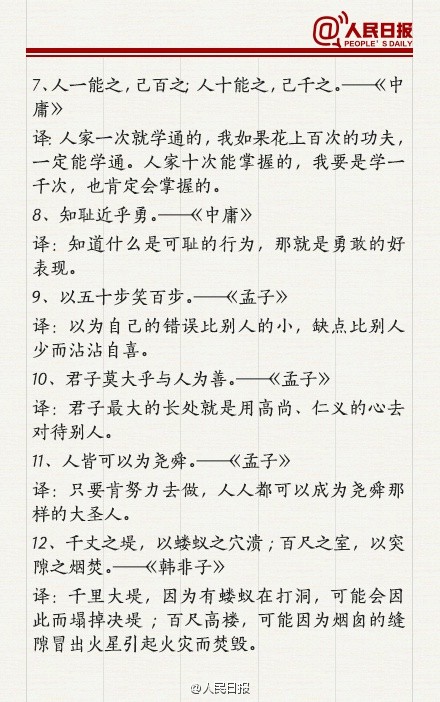 @人民日报
PEOPLE'S DAILY
7、人一能之,己百之;人十能之,己千之。——《中
庸》
译:人家一次就学通的,我如果花上百次的功夫,
一定能学通。人家十次能掌握的,我要是学一
千次,也肯定会掌握的。
8、知耻近乎勇。——《中庸》
译:知道什么是可耻的行为,那就是勇敢的好
表现。
9、以五十步笑百步。——《孟子》
译:以为自己的错误比别人的小,缺点比别人
少而沾沾自喜。
10、君子莫大乎与人为善。——《孟子》
译:君子最大的长处就是用高尚、仁义的心去
对待别人。
11、人皆可以为尧舜。——《孟子》
译:只要肯努力去做,人人都可以成为尧舜那
样的大圣人。
12、千丈之堤,以蝼蚁之穴溃;百尺之室,以突
隙之烟焚。——《韩非子》
译:千里大堤,因为有蝼蚁在打洞,可能会因
此而塌掉决堤;百尺高楼,可能因为烟囱的缝
隙冒出火星引起火灾而焚毁。
@人民日报